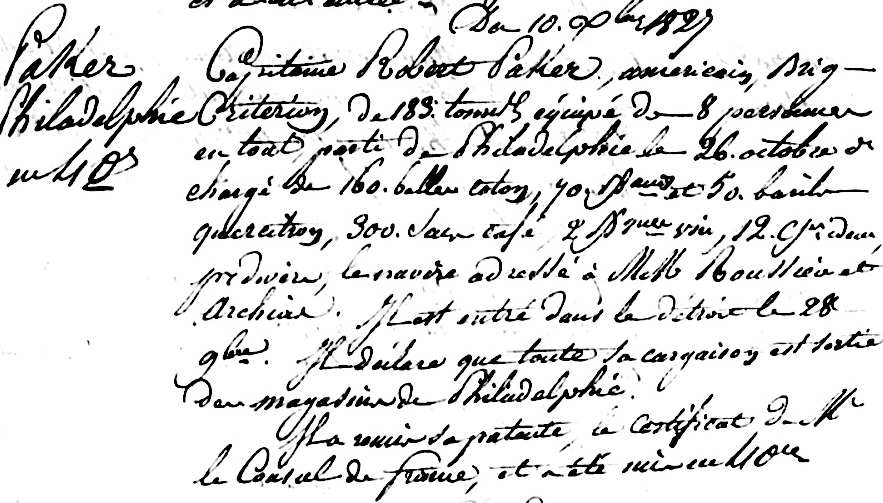 Du 10. Xbre 1827
Paker
Philadelphie
en 40ne
Capitaine Robert Paker, americain, Brig
Criterion, de 183. tonnx équipé de 8 personnes
en tout, parti de Philadelphie le 26. octobre dr
chargé de 160. balles coton, 70. et 50. barils
quercitron, 300. sacs café, 2 vin, 12.
pr divers, le navire adressé à MM Roussier et
Archias. Il est entré dans le détroit le 28
9bre. Il déclare que toute sa cargaison est sortie
des magasins de Philadelphie.
Il a remis sa patente, le certificat de Mr
le Consul de france, et a été mis en 40ne